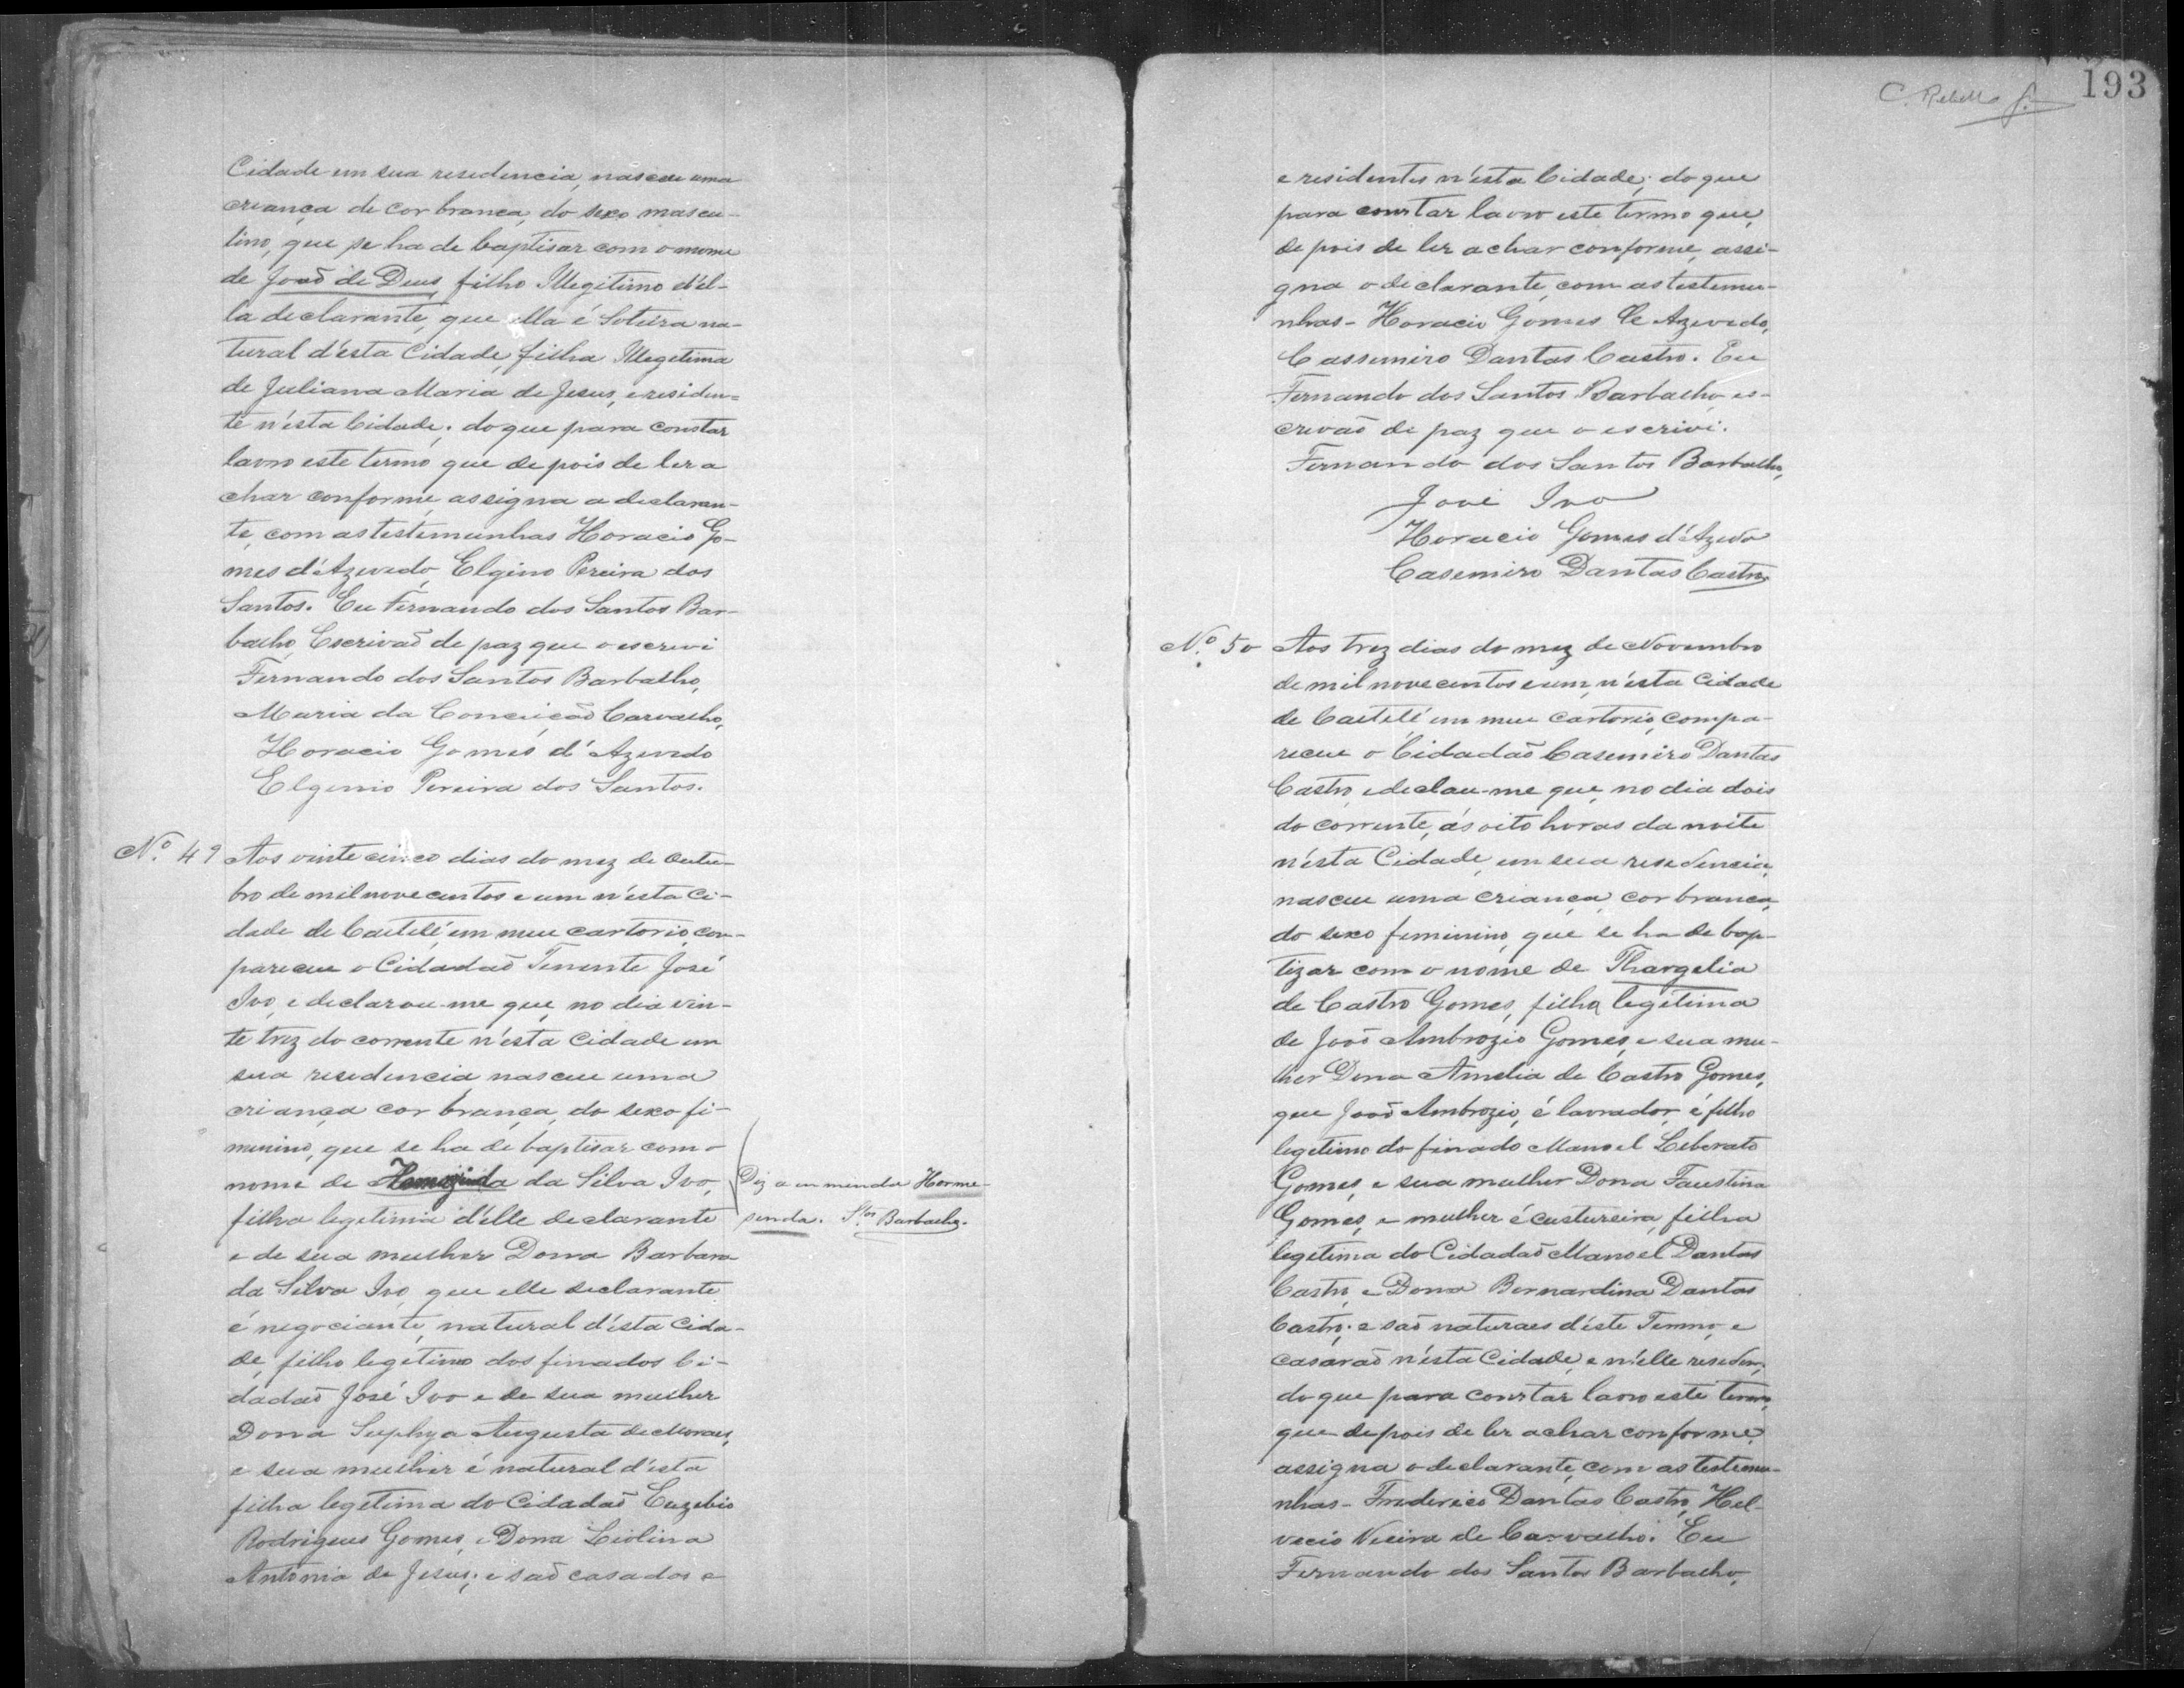 Cidade em sua residencia, nasceu uma
criança de cor branca, do sexo mascu-
lino, que se ha de baptisar com o nome
de Joaõ de Deus, filho Illegitimo d'el-
la declarante, que ella é Solteira na-
tural d'esta Cidade, filha Illegitima
de Juliana Maria de Jesus, e residen-
te n'esta Cidade; do que para constar
lavro este termo que depois de ler a
char conforme, assigna a declaran-
te, com as testemunhas Horacio Go-
mes d'Azevedo, Elgino Pereira dos
Santos. Eu Fernando dos Santos Bar-
balho, Escrivaõ de paz que o escrevi
Fernando dos Santos Barbalho,
Maria da Conceiçaõ Carvalho,
Horacio Gomes d'Azevedo
Elginio Pereira dos Santos.
Nº 49 Aos vinte cinco dias do mez de Outu-
bro de mil nove centos e um n'esta Ci-
dade de Caitité, em meu cartorio, com-
pareceu o Cidadaõ Tenente José
Ivo, e declarou-me que, no dia vin-
te trez do corrente n'esta Cidade em
sua residencia nasceu uma
criança cor branca, do sexo fi-
minino, que se ha de baptisar com o
nome de da Silva Ivo,
filha legitima d'elle declarante
e de sua mulher Dona Barbara
da Silva Ivo, que elle declarante
é negociante, natural d'esta Cida-
de, filho legitimo dos finados Ci-
dadaõ José Ivo e de sua mulher
Dona Suphya Augusta de Moraes,
e sua mulher é natural d'esta
filha legitima do Cidadaõ Euzebio
Rodrigues Gomes, e Dona Liolina
Antonia de Jesus; e saõ casados e
Diz a emmenda Horme-
senda. Stos Barbalho.
C. Rebello
193
e residentes n'esta Cidade; do que
para constar lavro este termo que,
depois de ler achar conforme, assi-
gna o declarante, com as testemu-
nhas - Horacio Gomes de Azevedo,
Cassemiro Dantas Castro. Eu
Fernando dos Santos Barbalho, es-
crivaõ de paz que o escrivi.
Fernando dos Santos Barbalho,
José Ivo
Horacio Gomes d'Azevdo
Casemiro Dantas Castro
Nº 50 Aos trez dias do mez de Novembro
de mil nove centos e um, n'esta Cidade
de Caitité em meu Cartorio, compa-
receu o Cidadaõ Casemiro Dantas
Castro, e declau-me que, no dia dois
do corrente, ás oito horas da noite
n'esta Cidade, em sua residencia,
nasceu uma criança, cor branca,
do sexo feminino, que se ha de bap-
tizar com o nome de Thargelia
de Castro Gomes, filha legitima
de Joaõ Ambrozio Gomes, e sua mu-
lher Dona Amelia de Castro Gomes,
que Joaõ Ambrozio, é lavrador, é filho
legitimo do finado Manoel Liberato
Gomes, e sua mulher Dona Faustina
Gomes, e mulher é custureira, filha
legitima do Cidadaõ Manoel Dantas
Castro, e Dona Bernardina Dantas
Castro; e saõ naturaes d'este Termo, e
casaraõ n'esta Cidade, e n'elle residem,
do que para constar lavro este termo,
que depois de ler achar conforme,
assigna o declarante, com as testemu-
nhas - Frederico Dantas Castro, Hel-
vecio Vieira de Carvalho. Eu
Fernando dos Santos Barbalho,